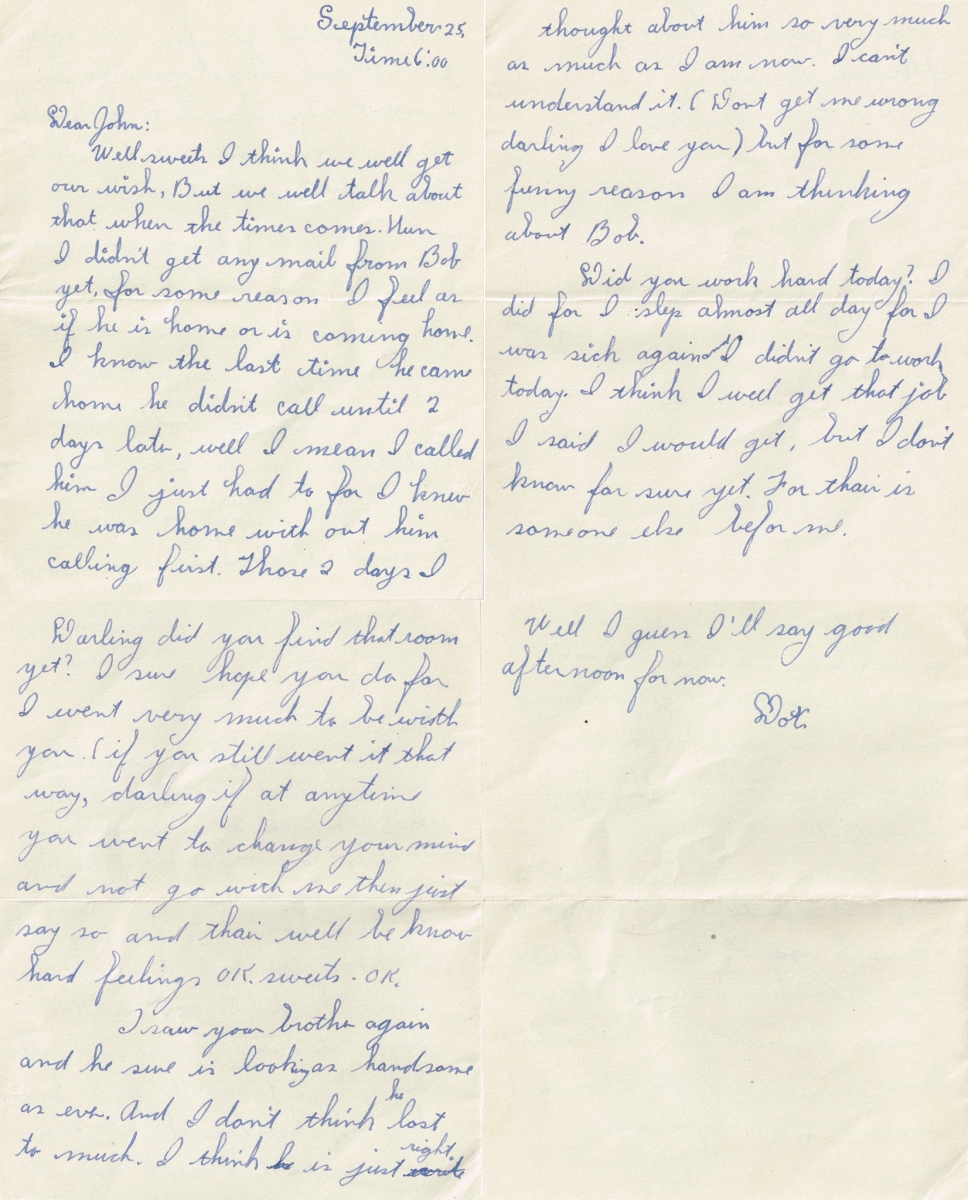 September 25,
Time 6:00
Dear John:
Well sweets I think we well get
our wish, But we well talk about
that when the times comes. Hun
I didn't get any mail from Bob
yet, for some reason I feel as
if he is home or is coming home.
I know the last time he came
home he didn't call until 2
days late, well I mean I called
him I just had to for I knew
he was home with out him
calling first. Those 2 days I
thought about him so very much
as much as I am now. I can't
understand it. (Dont get me wrong
darling I love you) but for some
funny reason I am thinking
about Bob.
Did you work hard today? I
did for I slep almost all day for I
was sick again I didn't go to work
today. I think I well get that job
I said I would get, but I don't
know for sure yet. For thair is
someone else befor me.
Darling did you find that room
yet? I sure hope you do for
I went very much to be with
you. (if you still went it that
way, darling if at anytime
you went to change your mind
and not go with me then just
say so and thair well be know
hard feelings OK. sweets - OK.
I saw your brother again
and he sure is looking as handsome
as ever. And I don't think he lost
to much. I think he is just right.
Well I guess I'll say good
afternoon for now.
Dot.